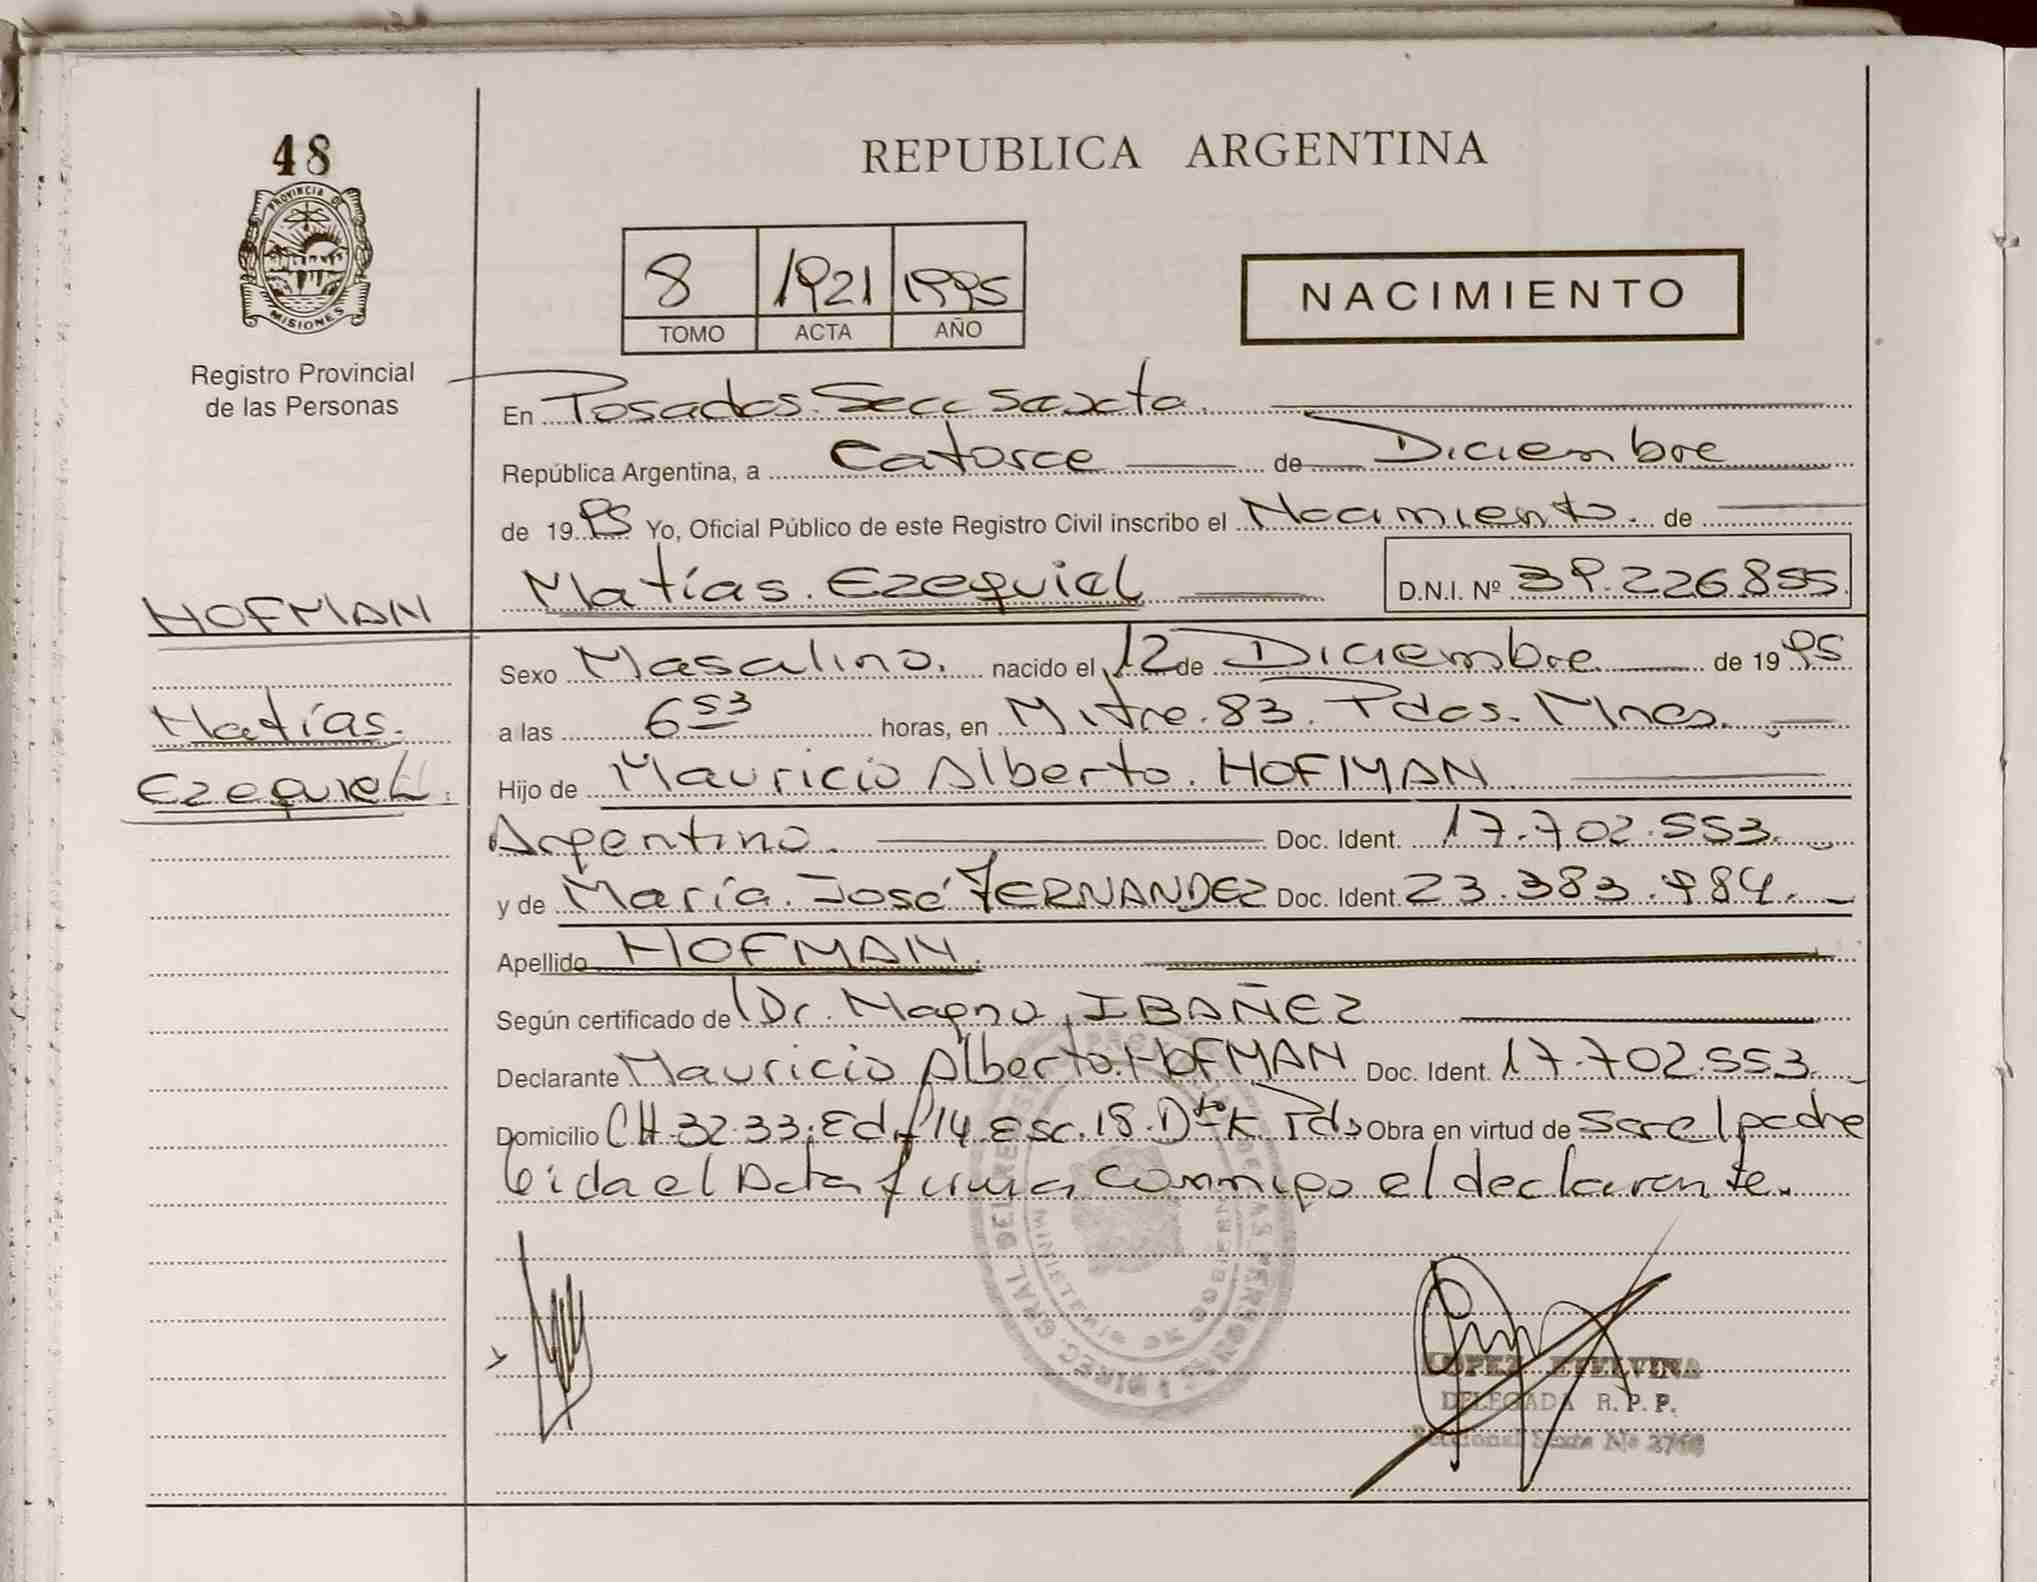 48
PROVINCIA DE
MISIONES
Registro Provincial
de las Personas
HOFMAN
Matías.
Ezequiel.
REPUBLICA ARGENTINA
8 1921 1995
TOMO ACTA AÑO
NACIMIENTO
En Posadas. Secc Sexta.
República Argentina, a Catorce de Diciembre
de 1995 Yo, Oficial Público de este Registro Civil inscribo el Nacimiento. de
Matías. Ezequiel D.N.I. Nº 39.226.855
Sexo Masculino. nacido el 12 de Diciembre de 1995
a las 6 53 horas, en Mitre. 83. Pdas. Mnes.
Hijo de Mauricio Alberto. HOFMAN
Argentino. Doc. Ident. 17.702.553.
y de María. José FERNANDEZ Doc. Ident. 23.383.984.
Apellido HOFMAN.
Según certificado de Dr. Magno IBAÑEZ
Declarante Mauricio Alberto. HOFMAN Doc. Ident. 17.702.553.
Domicilio CH. 32.33. Edf 14 Esc. 18. Dto K Pds Obra en virtud de Ser el padre
leida el Acta firma conmigo el declarante.
LOPEZ ETELVINA
DELEGADA R. P. P.
Seccional Sexta Nº